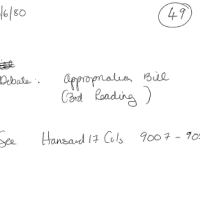 /6/80
49
Debate:. Appropriation Bill
(3rd Reading)
See Hansard 17 Cols 9007 - 90